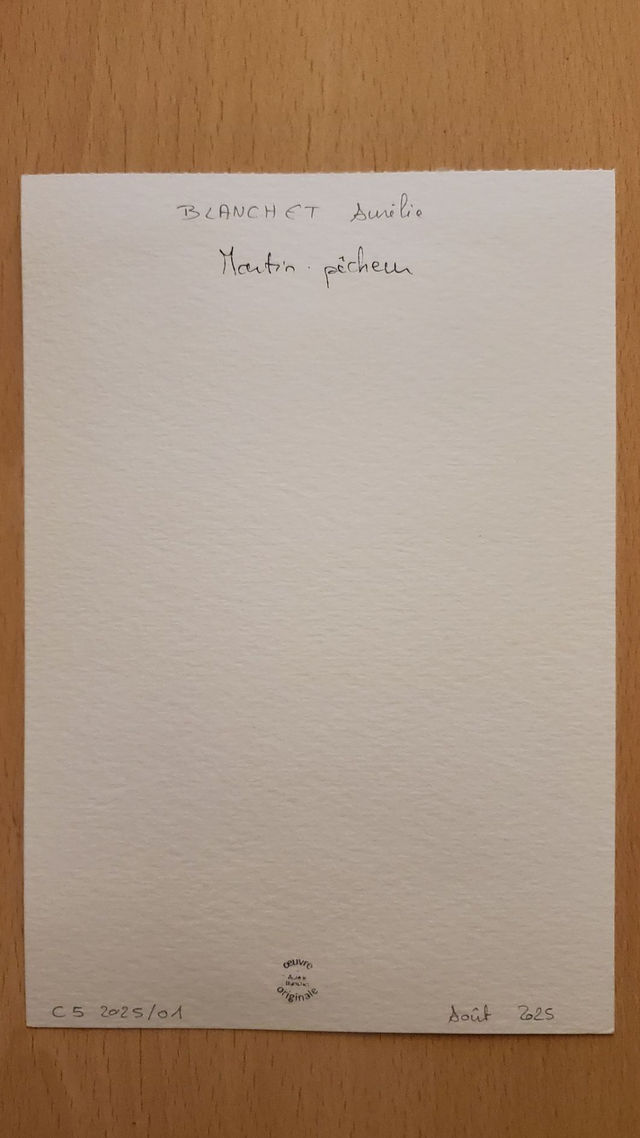 BLANCHET Aurélie
Martin-pêcheur
œuvre
originale
C5 2025/01
Août 2025